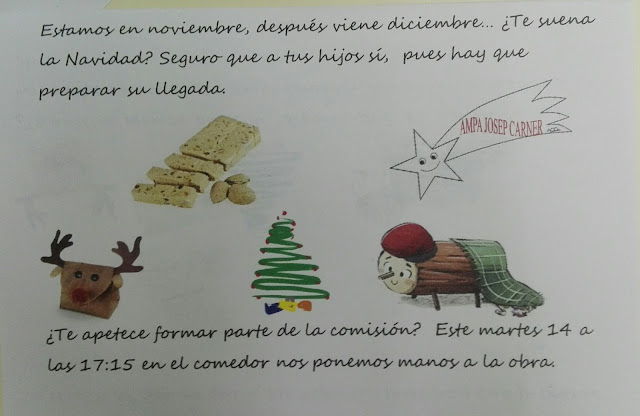 Estamos en noviembre, después viene diciembre... ¿Te suena
la Navidad? Seguro que a tus hijos sí, pues hay que
preparar su llegada.
AMPA JOSEP CARNER
¿Te apetece formar parte de la comisión? Este martes 14 a
las 17:15 en el comedor nos ponemos manos a la obra.